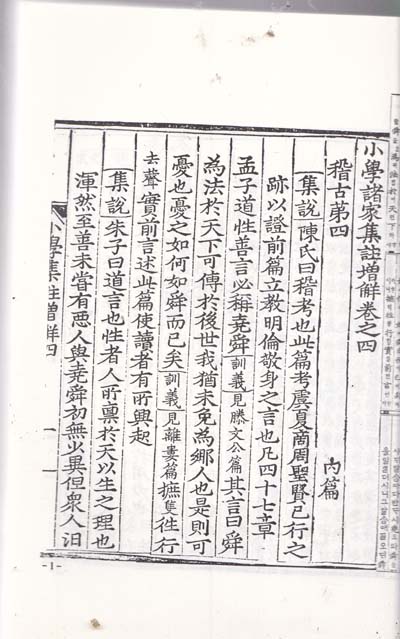 小學諸家集註增解卷之四
稽古第四 內篇
集說陳氏曰稽考也此篇考虞夏商周聖賢已行之
跡以證前篇立敎明倫敬身之言也凡四十七章
孟子道性善言必稱堯舜訓義見滕文公篇其言曰舜
為法於天下可傳於後世我猶未免為鄉人也是則可
憂也憂之如何如舜而已矣訓義見離婁篇摭隻徃行
去聲實前言述此篇使讀者有所興起
集說朱子曰道言也性者人所稟於天以生之理也
渾然至善未甞有惡人與堯舜初無少異但衆人汨
小學集註增解四 一
-1-